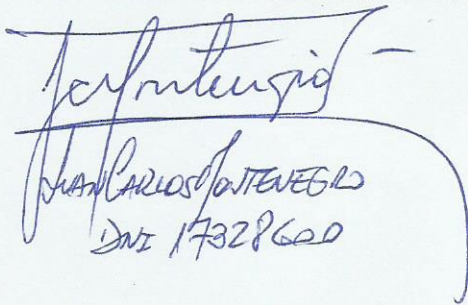 JCMontenegro
JUAN CARLOS MONTENEGRO
DNI 17328600